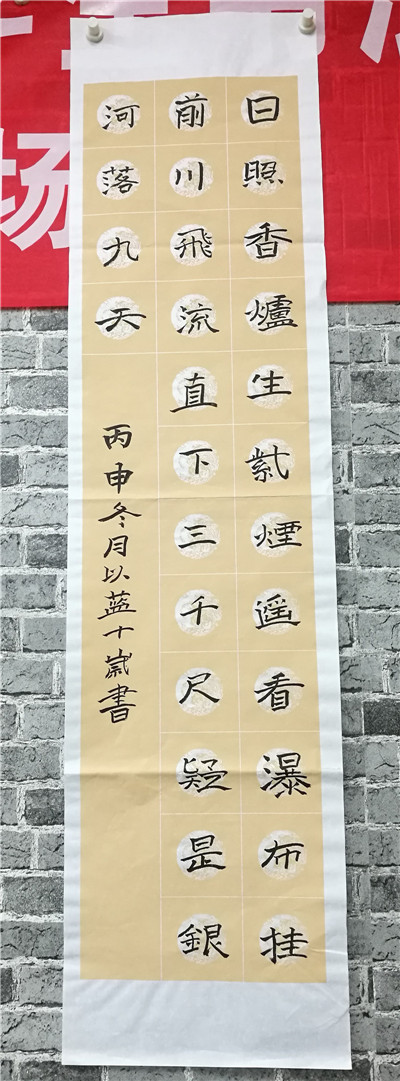 场
日照香爐生紫煙遥看瀑布挂
前川飛流直下三千尺疑是銀
河落九天
丙申冬月以蓝十歲書